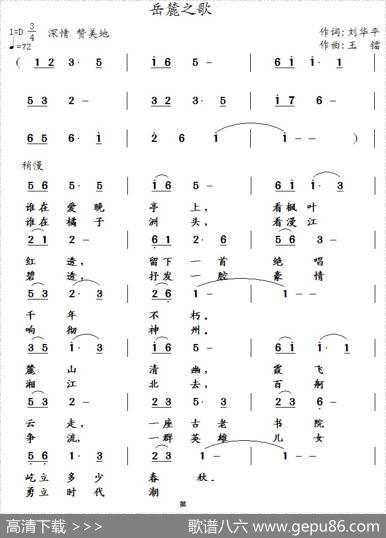 岳麓之歌
1=D 3/4 深情 赞美地 作词:刘华平
♩=72 作曲:王 镭
( 1 2 3· 5 | i 6 5 - | 6 i i· i |
5 3 2 - | 3 2 3· 5 | i 7 6 - |
6 5 6· i | 2 6 i | i - - ) |
稍慢
5 6 5· 5 | i 6 5 - | 6 i i· 3 |
谁在爱晚 亭上， 看枫叶
谁在橘子 洲头， 看漫江
2 1 2 - | 6 1 2· 6 | 5 6 3 - |
红透， 留下一首 绝唱
碧透， 抒发一腔 豪情
5 3 2· 3 | 2 6 1 - | 1 - - |
千年 不朽。
响彻 神州。
3 5 i· 3 | i 6 5 - | 6 i i· 3 |
麓山 清幽， 霞飞
湘江 北去， 百舸
2 3 2 - | 5 3 2· 3 | 5 6 5 - |
云走， 一座古老 书院
争流， 一群英雄 儿女
5 6 1· 3 | 2 5 3 - | 3 - - |
屹立多少 春秋。
勇立时代 潮
第
高清下载 >>> 歌谱八六 www.gepu86.com